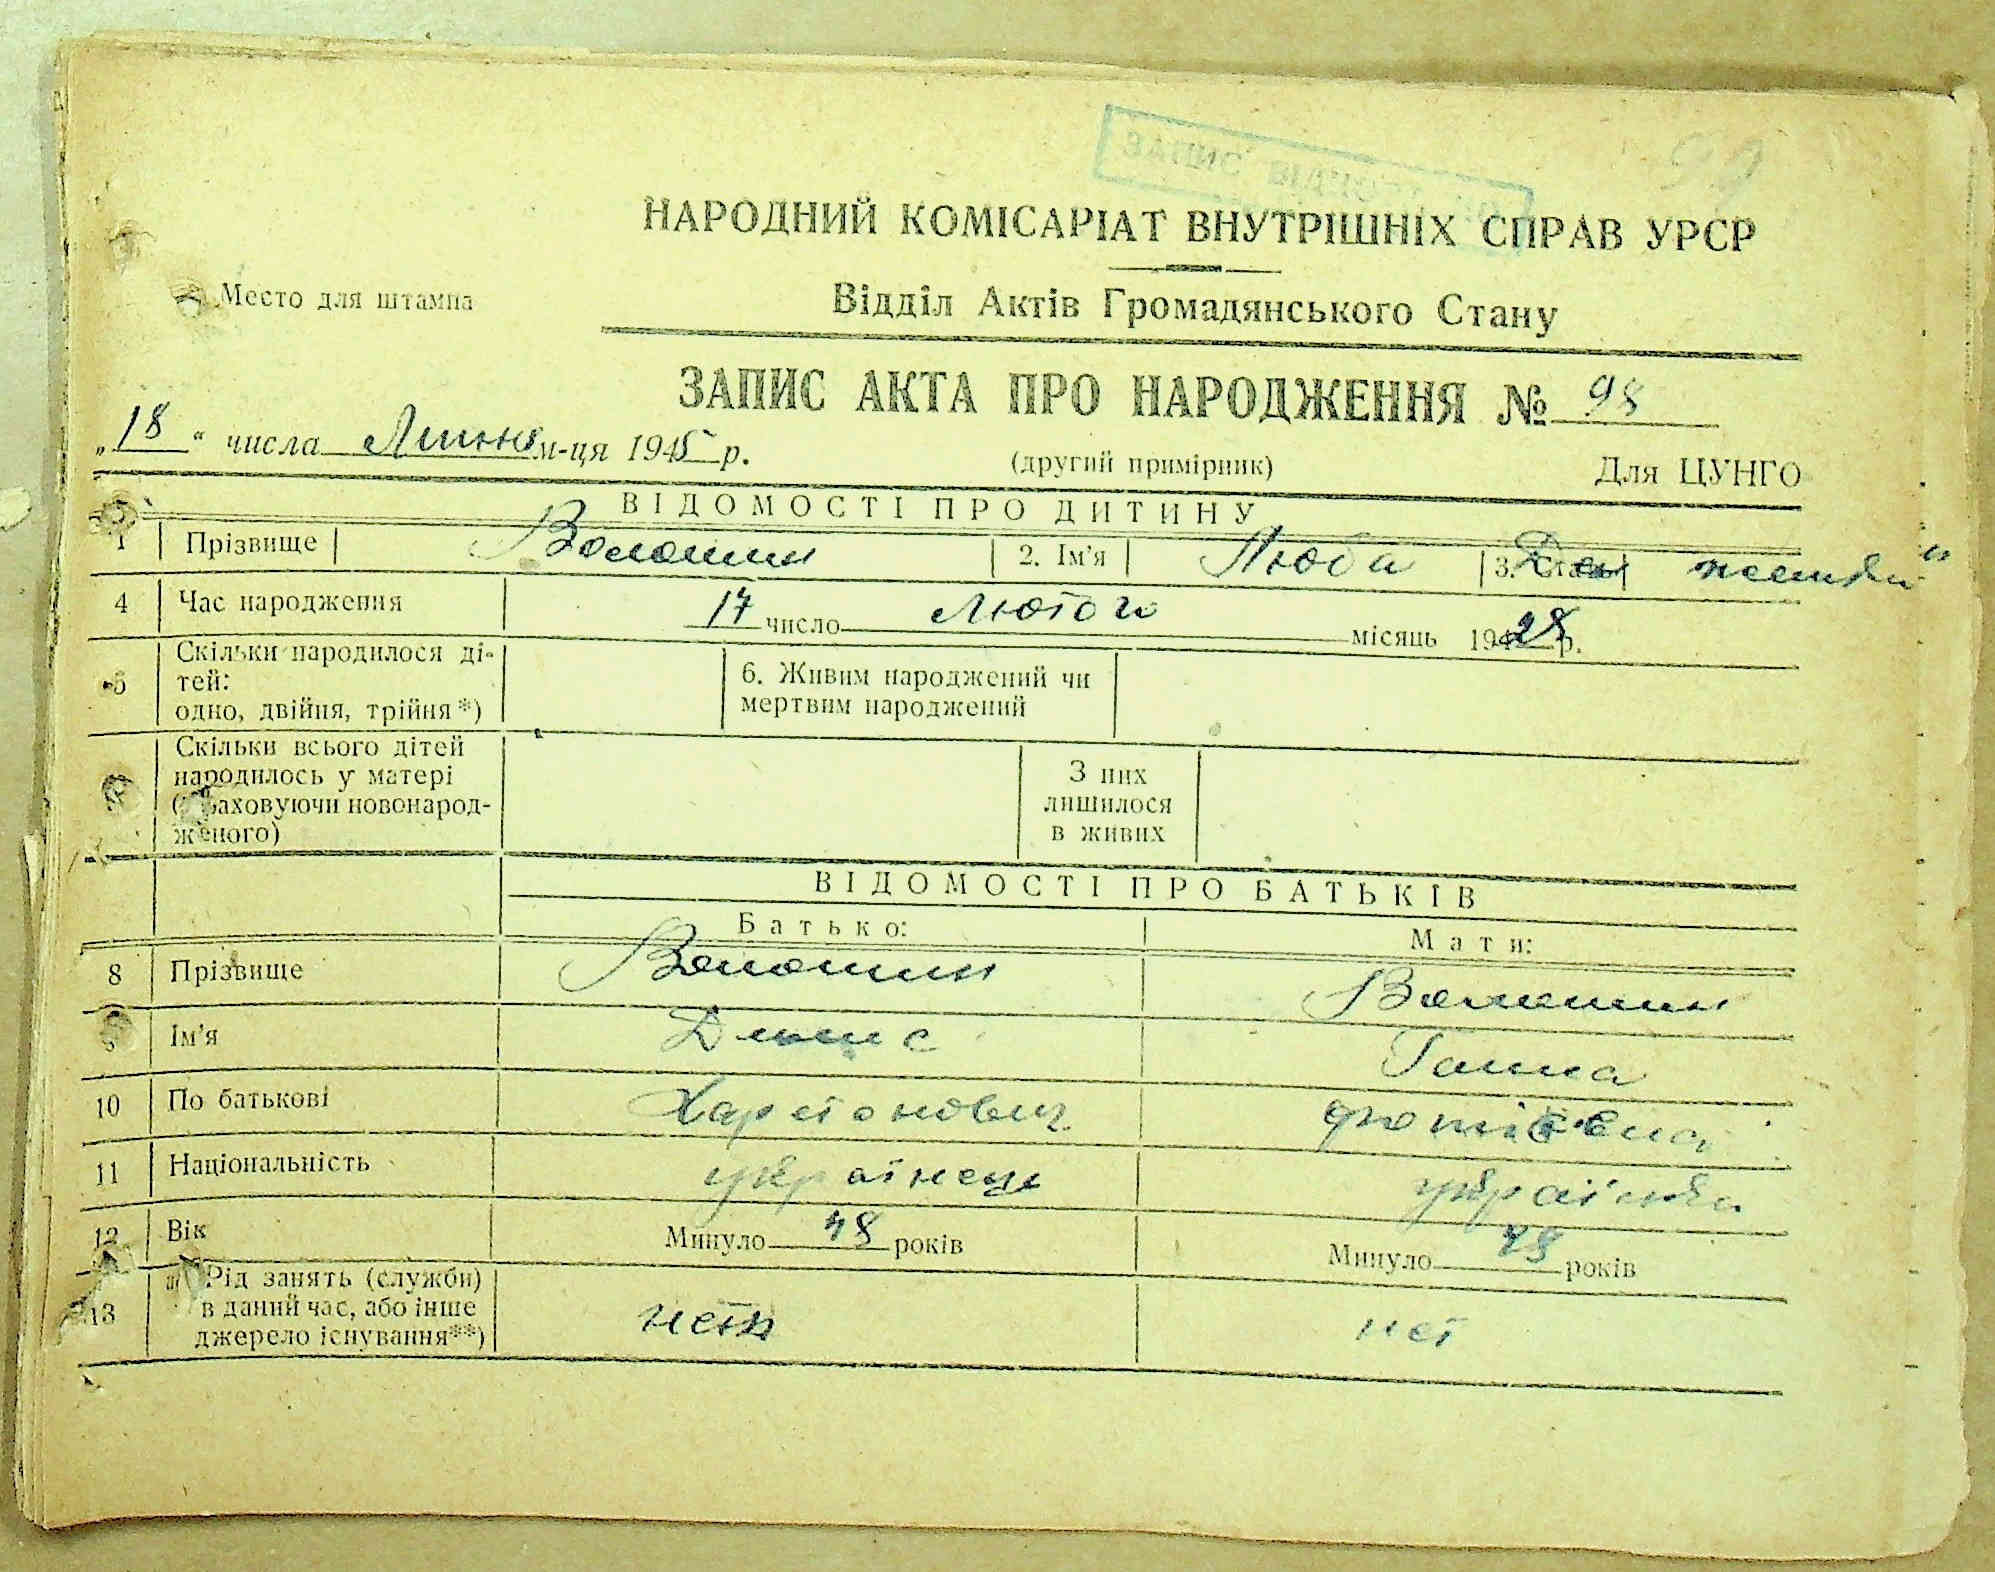 НАРОДНИЙ КОМІСАРІАТ ВНУТРІШНІХ СПРАВ УРСР
Место для штампа
Відділ Актів Громадянського Стану
ЗАПИС АКТА ПРО НАРОДЖЕННЯ № 98
„18“ числа Липня м-ця 1945 р.
(другий примірник) Для ЦУНГО
ВІДОМОСТІ ПРО ДИТИНУ
1 Прізвище Волошин 2. Ім'я Люба 3. Стать
4 Час народження 17 число Лютого місяць 1928 р.
5 Скільки народилося ді-
тей:
одно, двійня, трійня*)
6. Живим народжений чи
мертвим народжений
Скільки всього дітей
народилось у матері
(враховуючи новонарод-
женого)
З них
лишилося
в живих
ВІДОМОСТІ ПРО БАТЬКІВ
Батько: Мати:
8 Прізвище Волошин Волошин
9 Ім'я Денис Ганна
10 По батькові Харетонович
11 Національність українець українка
12 Вік Минуло 48 років Минуло 48 років
13 а) Рід занять (служби)
в даний час, або інше
джерело існування**)
нет нет